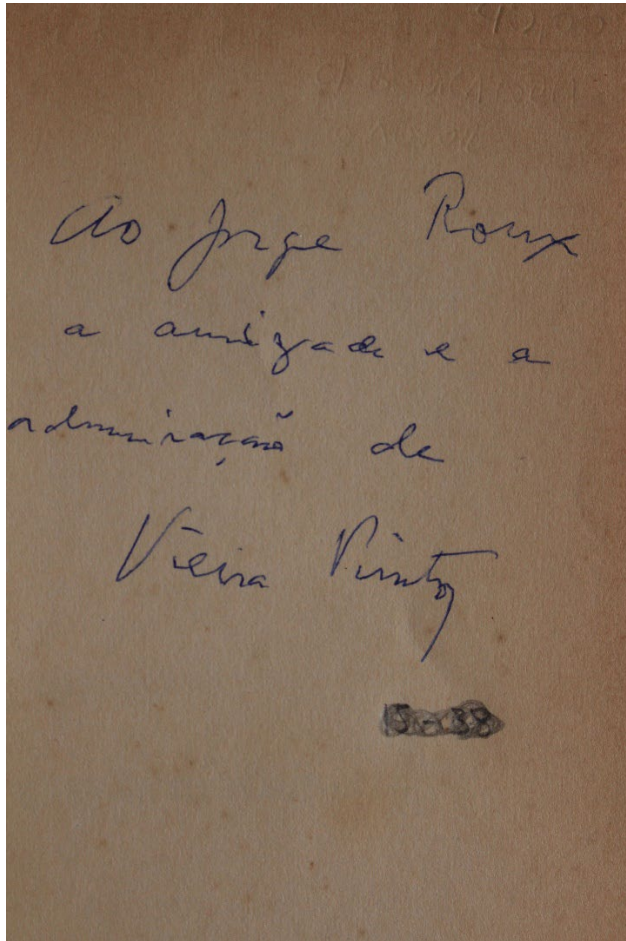 Ao Jorge Roux
a amizade e a
admiração de
Vieira Pinto